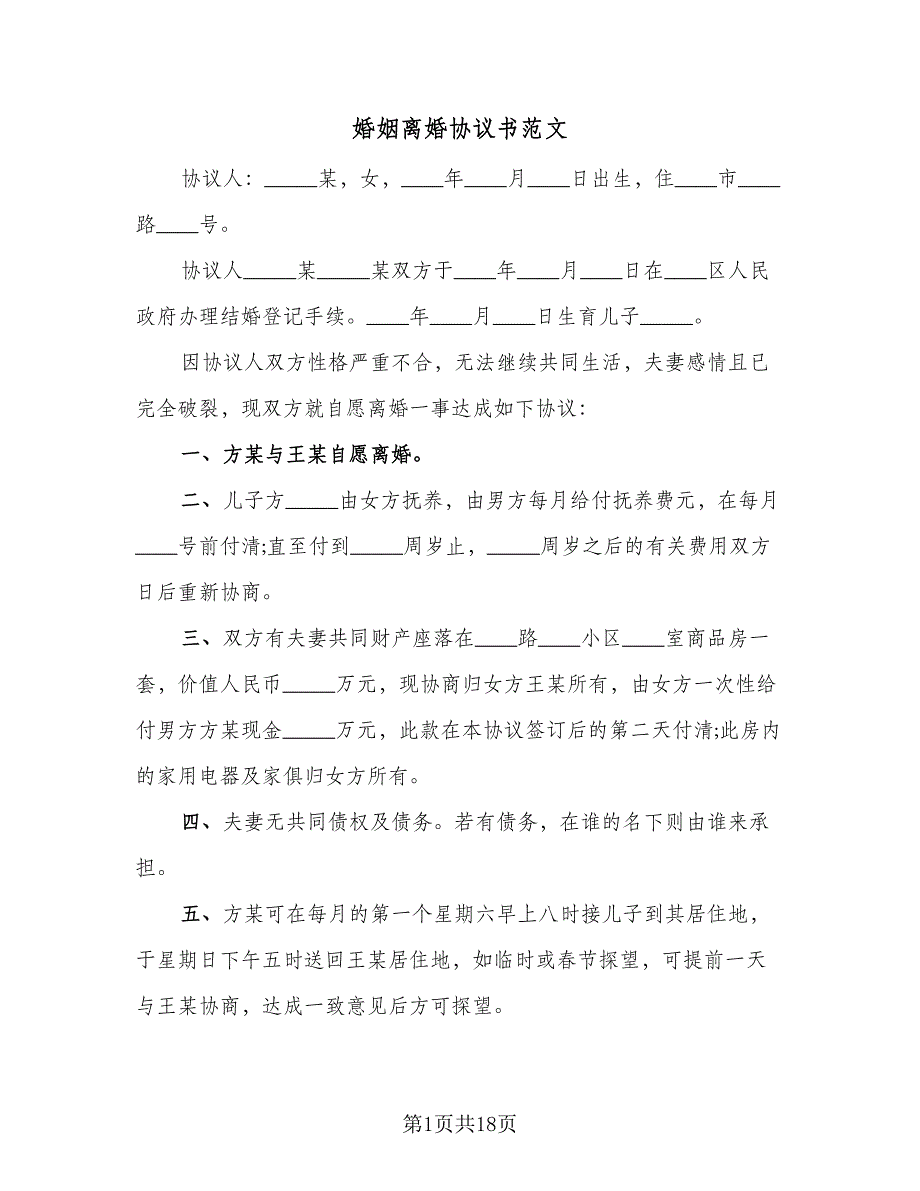 婚姻离婚协议书范文
协议人：_____某，女，____年____月____日出生，住____市____
路____号。
协议人_____某_____某双方于____年____月____日在____区人民
政府办理结婚登记手续。____年____月____日生育儿子_____。
因协议人双方性格严重不合，无法继续共同生活，夫妻感情且已
完全破裂，现双方就自愿离婚一事达成如下协议：
一、方某与王某自愿离婚。
二、儿子方_____由女方抚养，由男方每月给付抚养费元，在每月
____号前付清;直至付到_____周岁止，_____周岁之后的有关费用双方
日后重新协商。
三、双方有夫妻共同财产座落在____路____小区____室商品房一
套，价值人民币_____万元，现协商归女方王某所有，由女方一次性给
付男方方某现金_____万元，此款在本协议签订后的第二天付清;此房内
的家用电器及家俱归女方所有。
四、夫妻无共同债权及债务。若有债务，在谁的名下则由谁来承
担。
五、方某可在每月的第一个星期六早上八时接儿子到其居住地，
于星期日下午五时送回王某居住地，如临时或春节探望，可提前一天
与王某协商，达成一致意见后方可探望。
第1页共18页